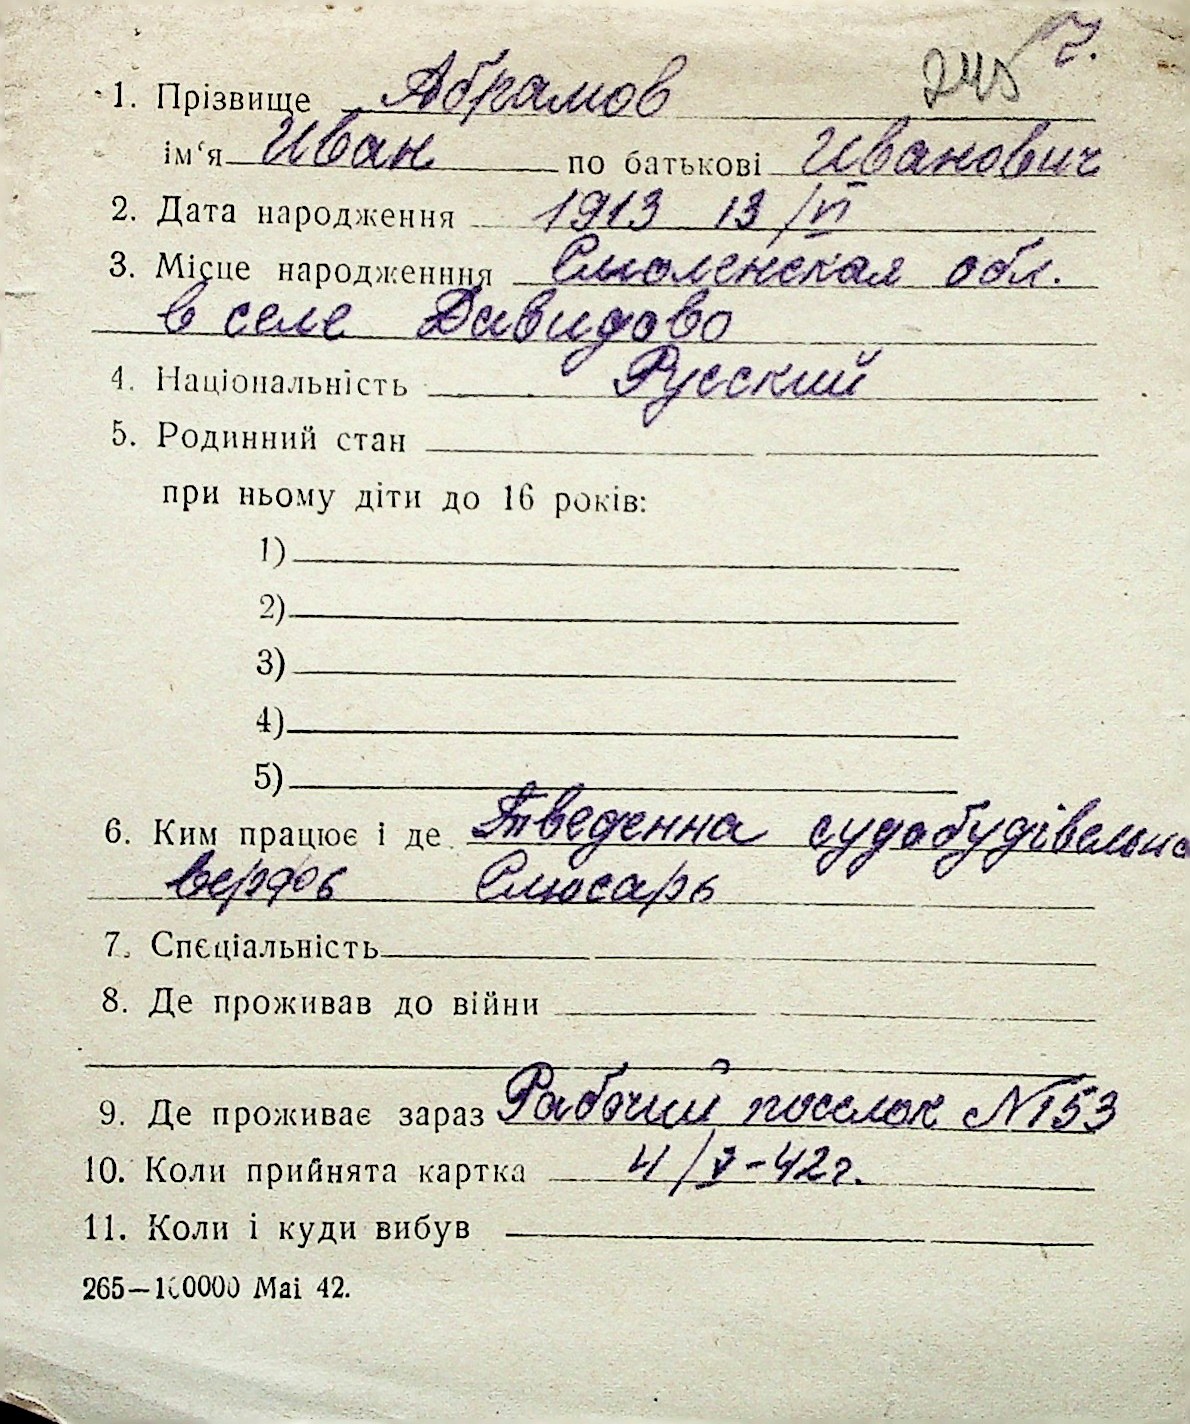 245 7.
1. Прізвище Абрамов
ім‘я Иван по батькові Иванович
2. Дата народження 1913 13/VI
3. Місце народженння Смоленская обл.
в селе Давидово
4. Національність Русский
5. Родинний стан
при ньому діти до 16 років:
1)
2)
3)
4)
5)
6. Ким працює і де судобудівельна
верфь Слюсарь
7. Спєціальність
8. Де проживав до війни
9. Де проживає зараз Рабочий поселок №153
10. Коли прийнята картка 4/V-42г.
11. Коли і куди вибув
265—100000 Маі 42.